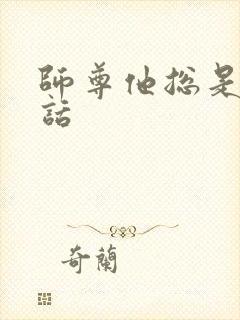 師尊他總是
話
奇蘭